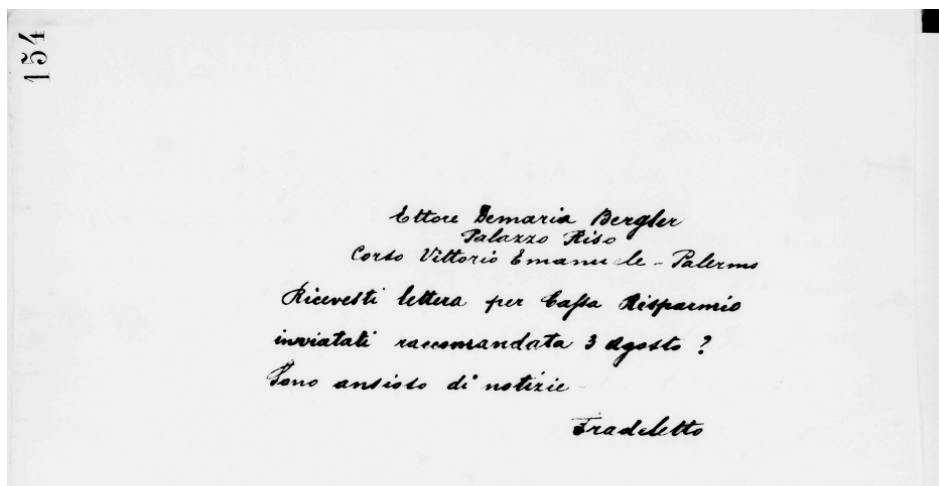 154
Ettore Demaria Bergler
Palazzo Riso
Corso Vittorio Emanuele - Palermo
Ricevesti lettera per Cassa Risparmio
inviatati raccomandata 3 Agosto ?
Sono ansioso di notizie
Fradeletto